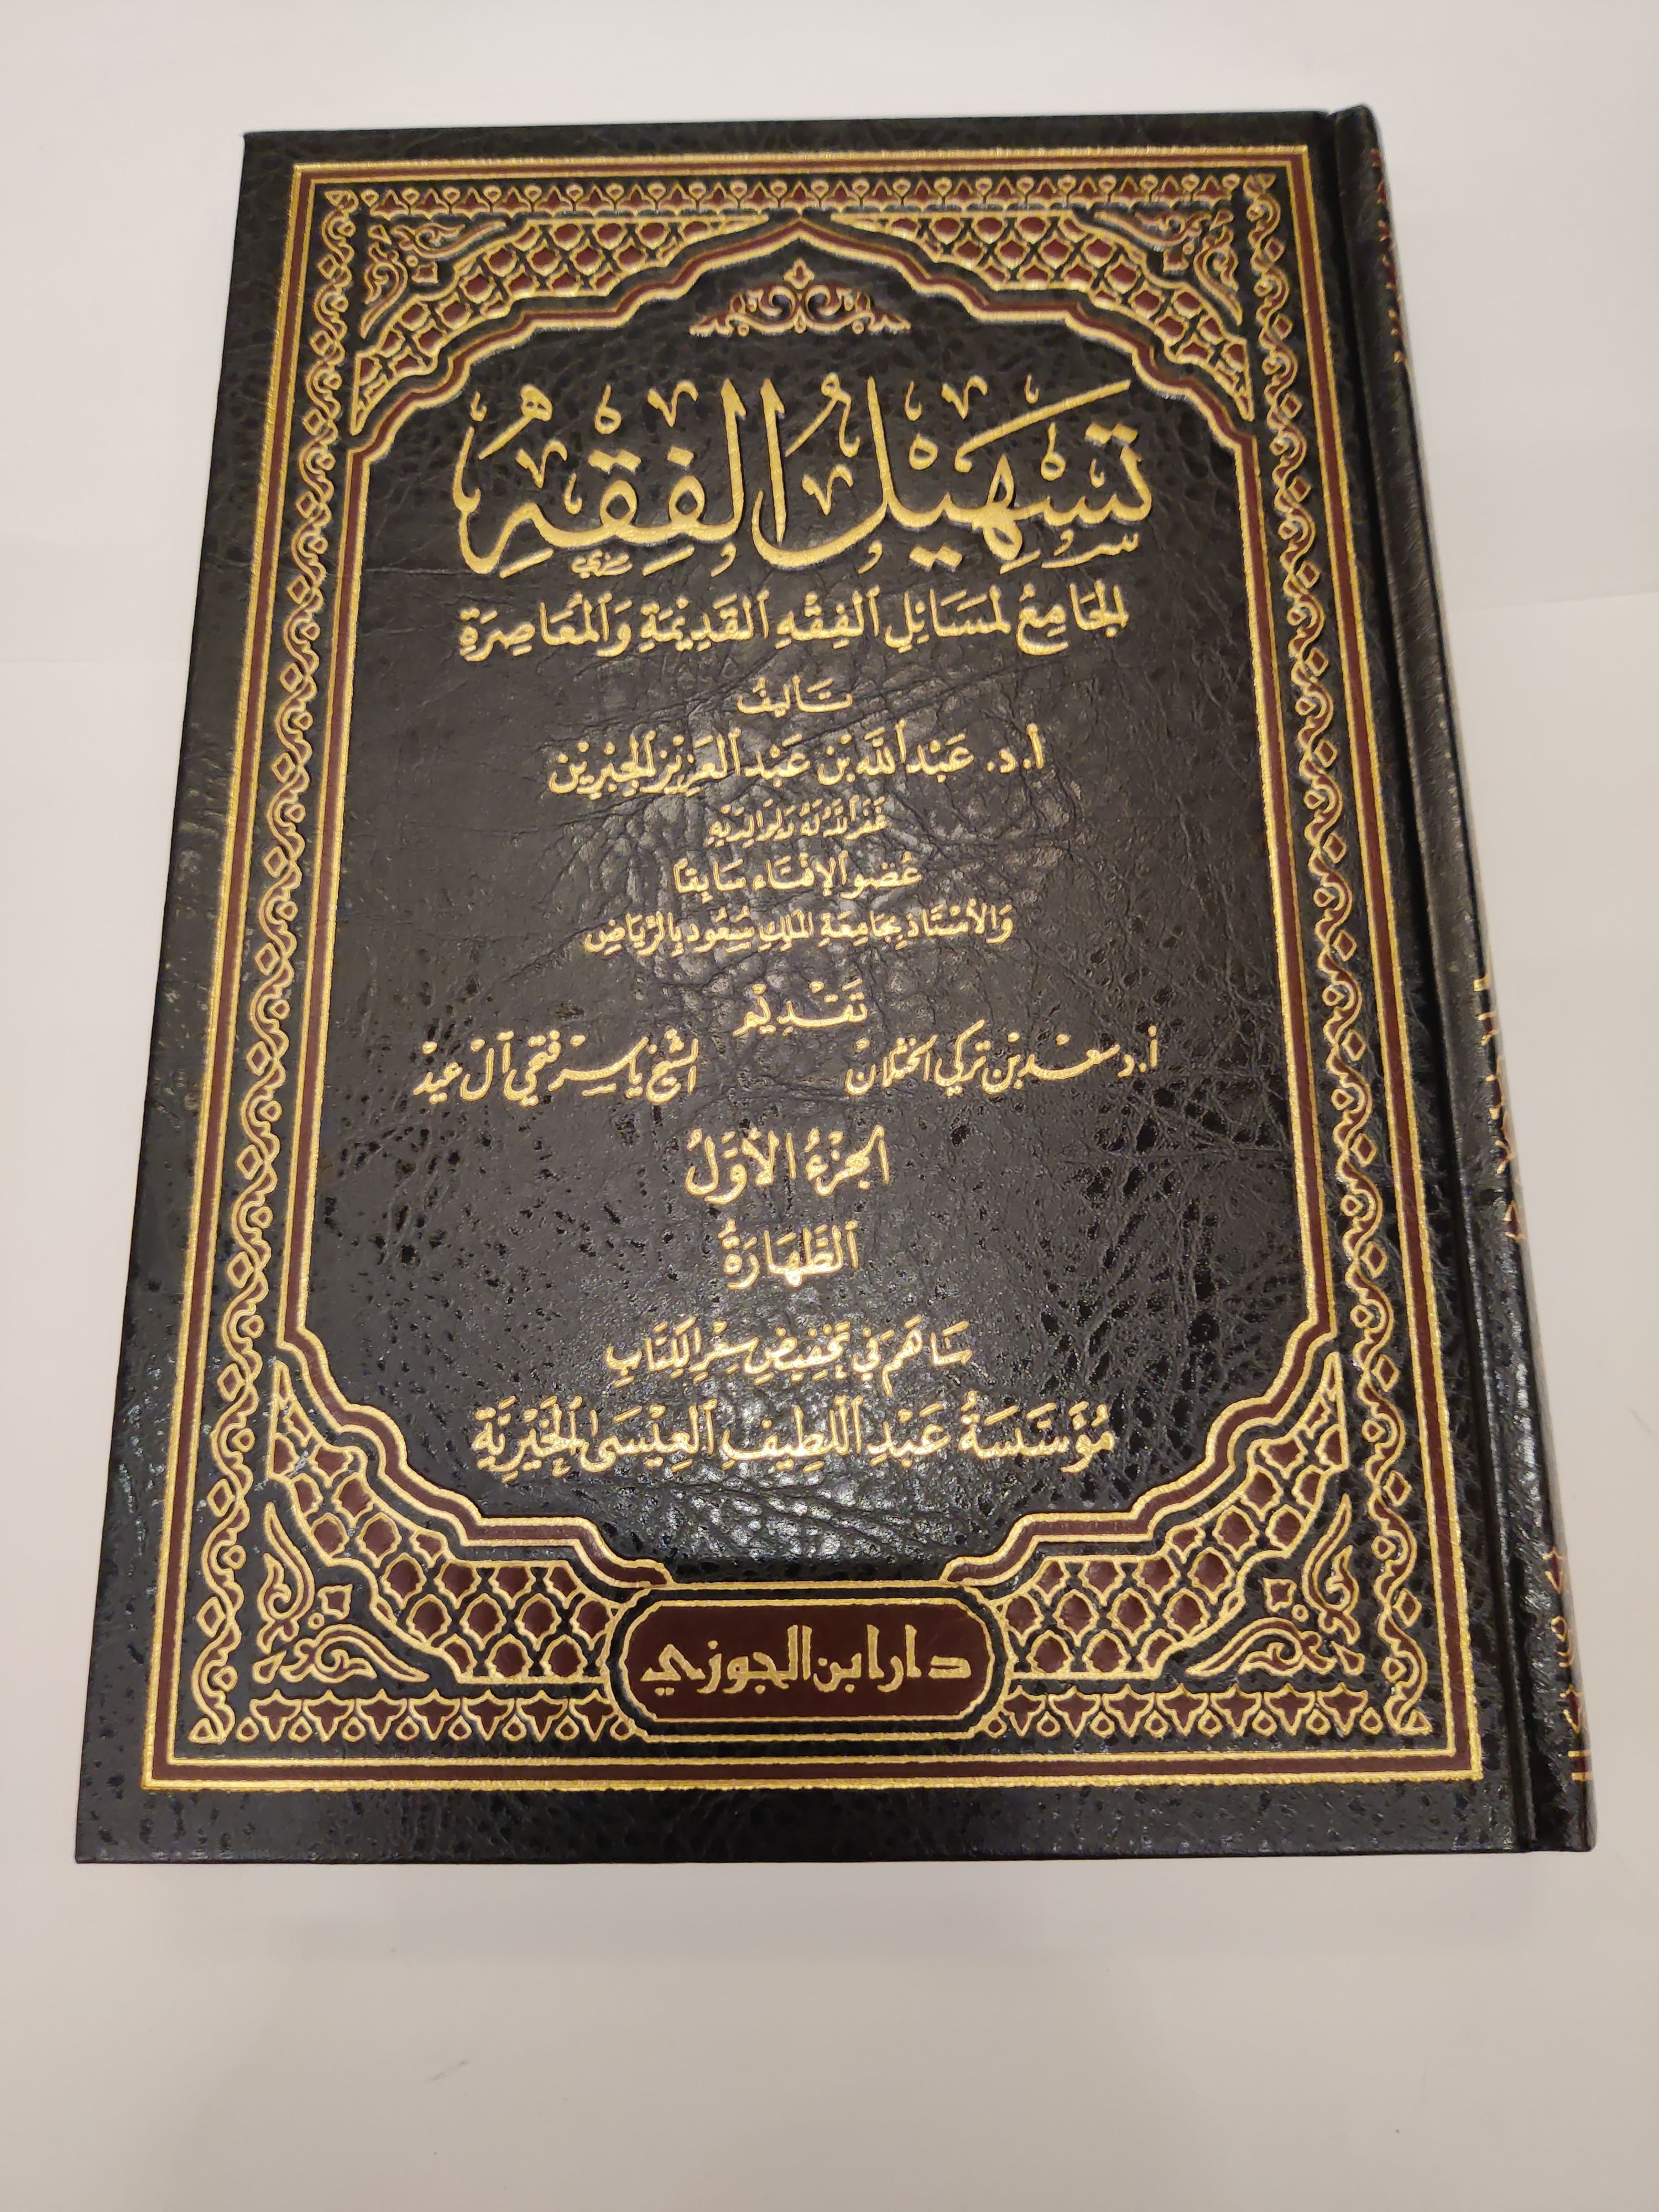 تَسْهِيْلُ الفِقْهِ
الجَامِعُ لمَسَائِلِ الفِقْهِ القَدِيْمَةِ وَالمُعَاصِرَةِ
تَأليفُ
أ.د. عَبْدالله بْن عَبْدالعَزِيْزالجِبْرِيْن
غَفَرَاللهُ لَهُ وَلِوَالِدَيْهِ
عُضوالإفْتَاء سَابِقاً
وَالأسْتَاذبجَامِعَةِ المَلِكِ سُعُود بِالرِّيَاضِ
تَقْدِيْم
أ.د سعْد بْن تركي الخثلانْ الشيخ ياسِرْ فتحي آل عيدْ
الجُزْءُ الأوَّلُ
الطَّهَارَةُ
سَاهَمَ في تَخفِيضِ سِعْرِ الكِتَابِ
مُؤَسَّسَةُ عَبْدِ اللَّطِيفِ العِيْسَى الخَيْرِيَّةِ
دار ابن الجوزي